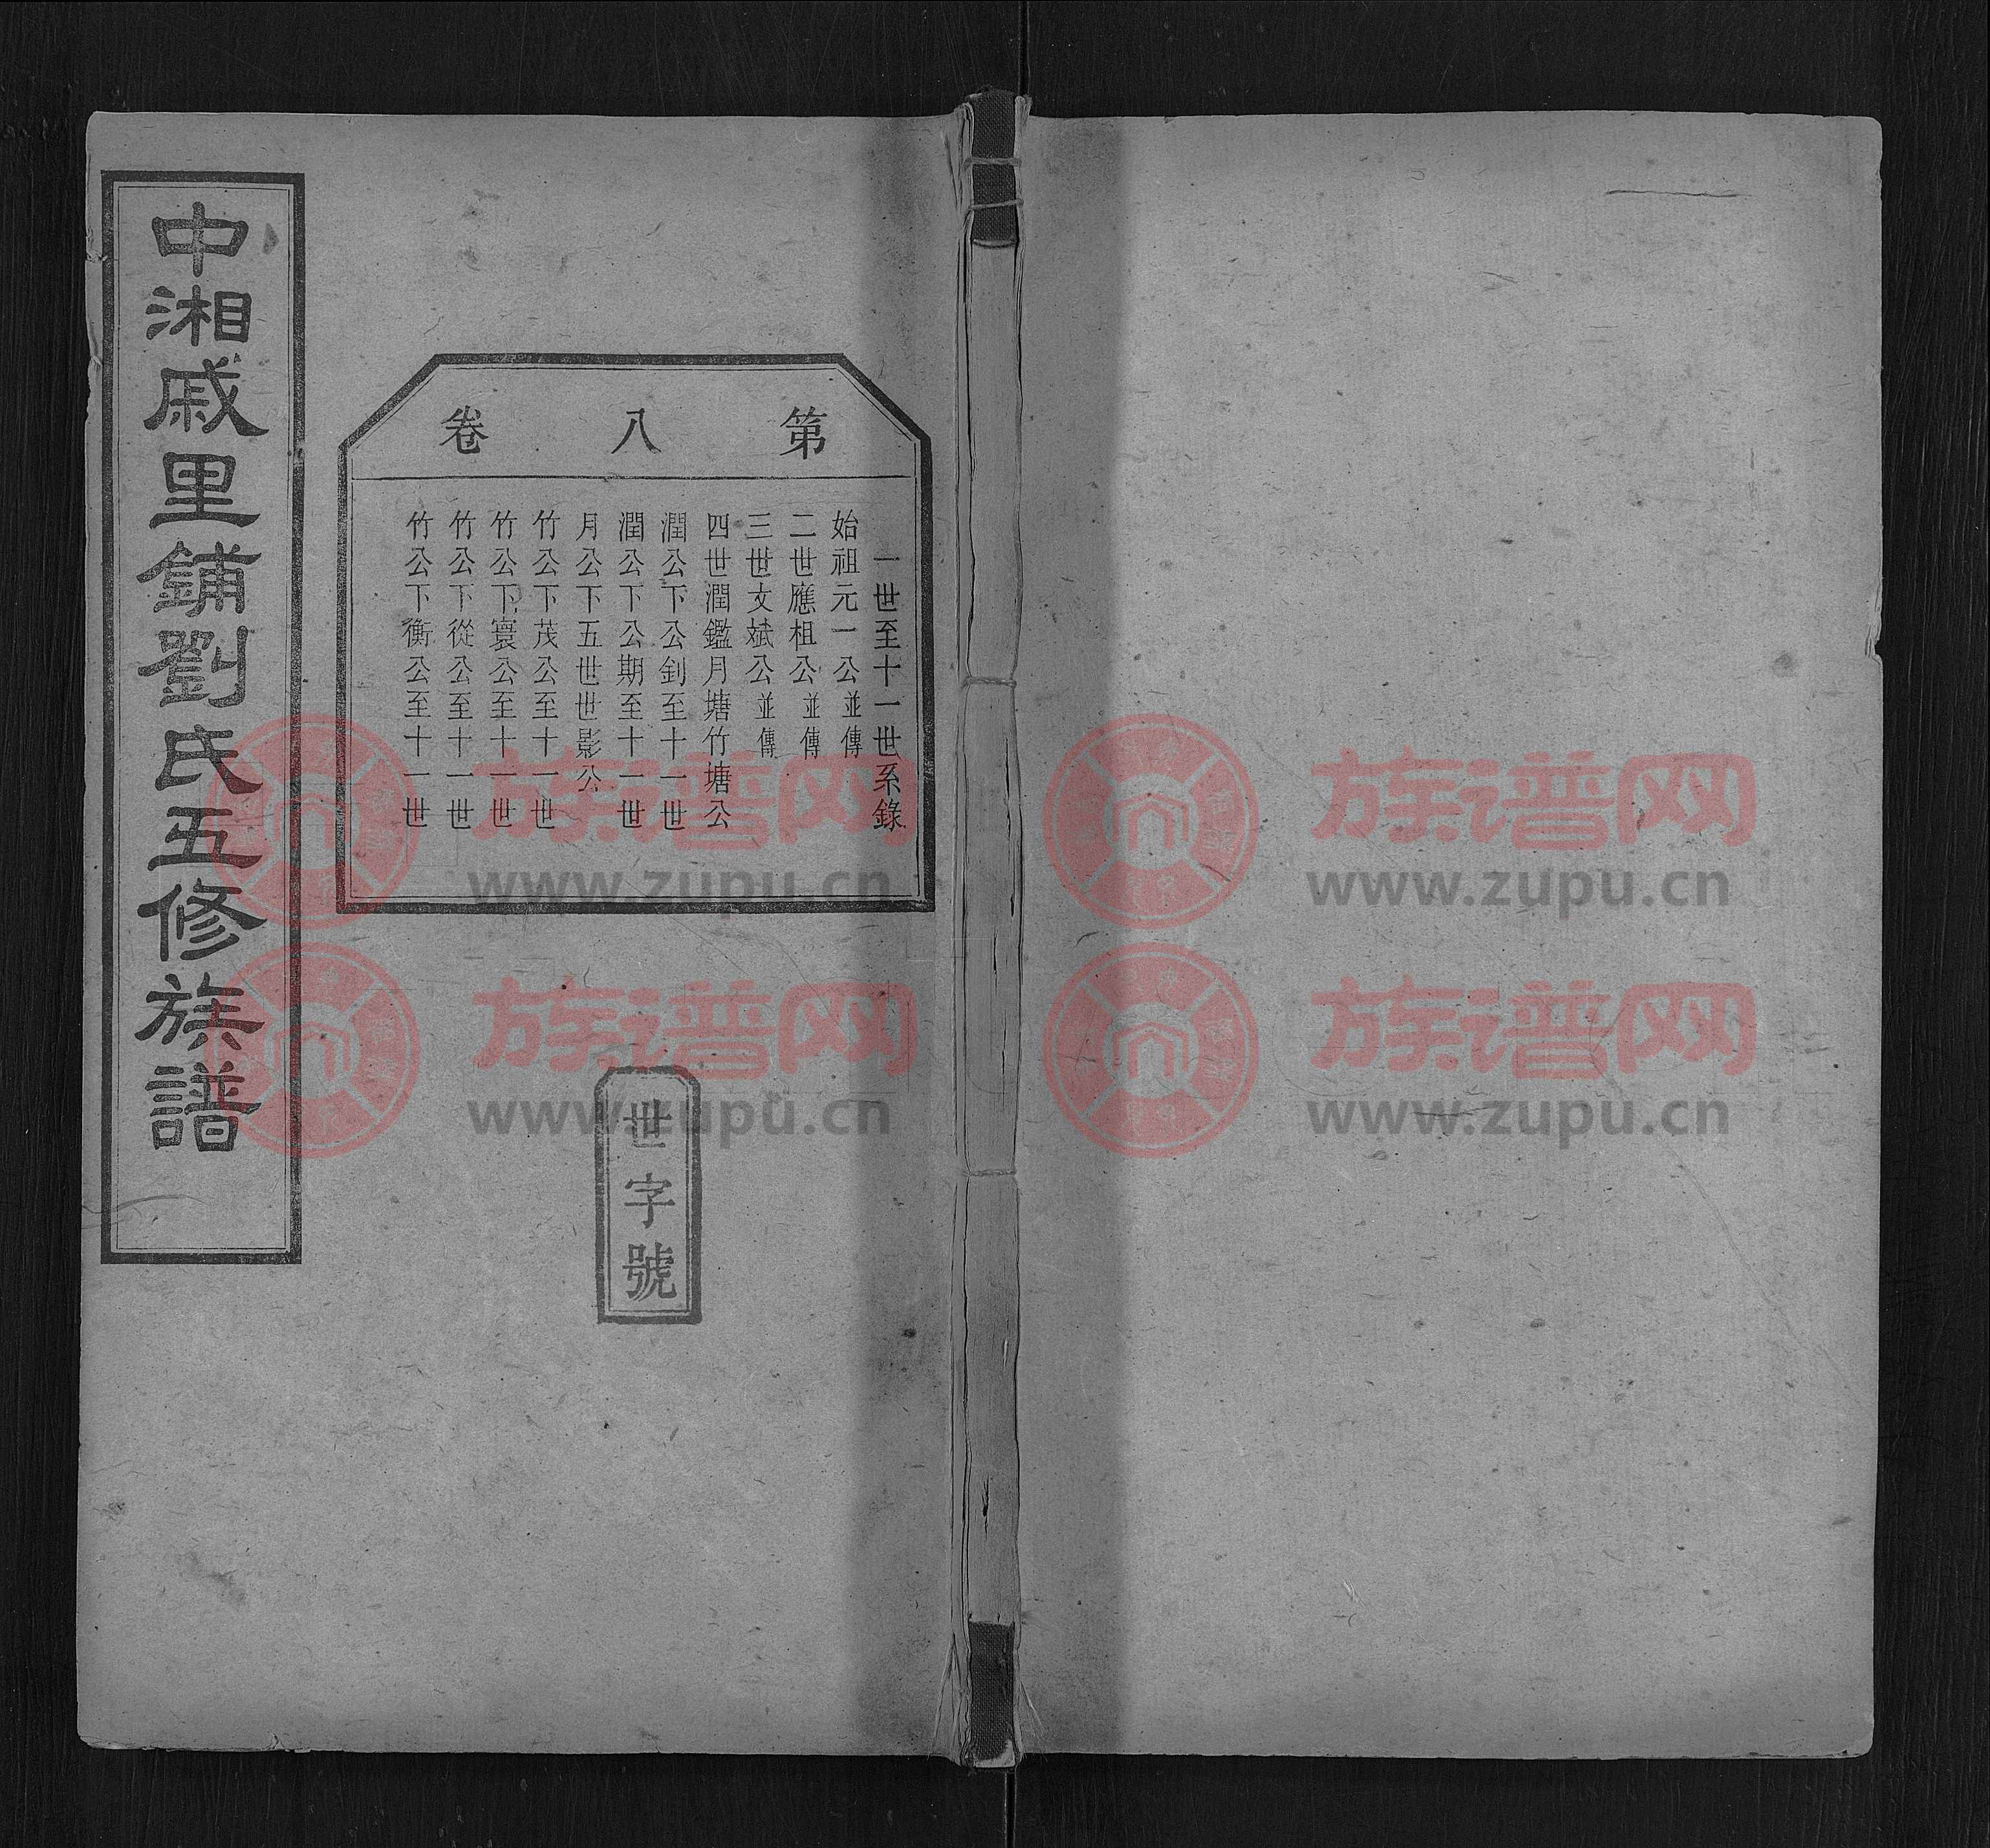 中湘戚里鋪劉氏五修族譜
第八卷
一世至十一世系錄
始祖元一公並傳
二世應祖公並傳
三世文斌公並傳
四世潤鑑月塘竹塘公
潤公下公釗至十一世
潤公下公期至十一世
月公下五世世影公
竹公下茂公至十一世
竹公下寰公至十一世
竹公下從公至十一世
竹公下衡公至十一世
世字號
族谱网
www.zupu.cn
族谱网
www.zupu.cn
族谱网
www.zupu.cn
族谱网
www.zupu.cn